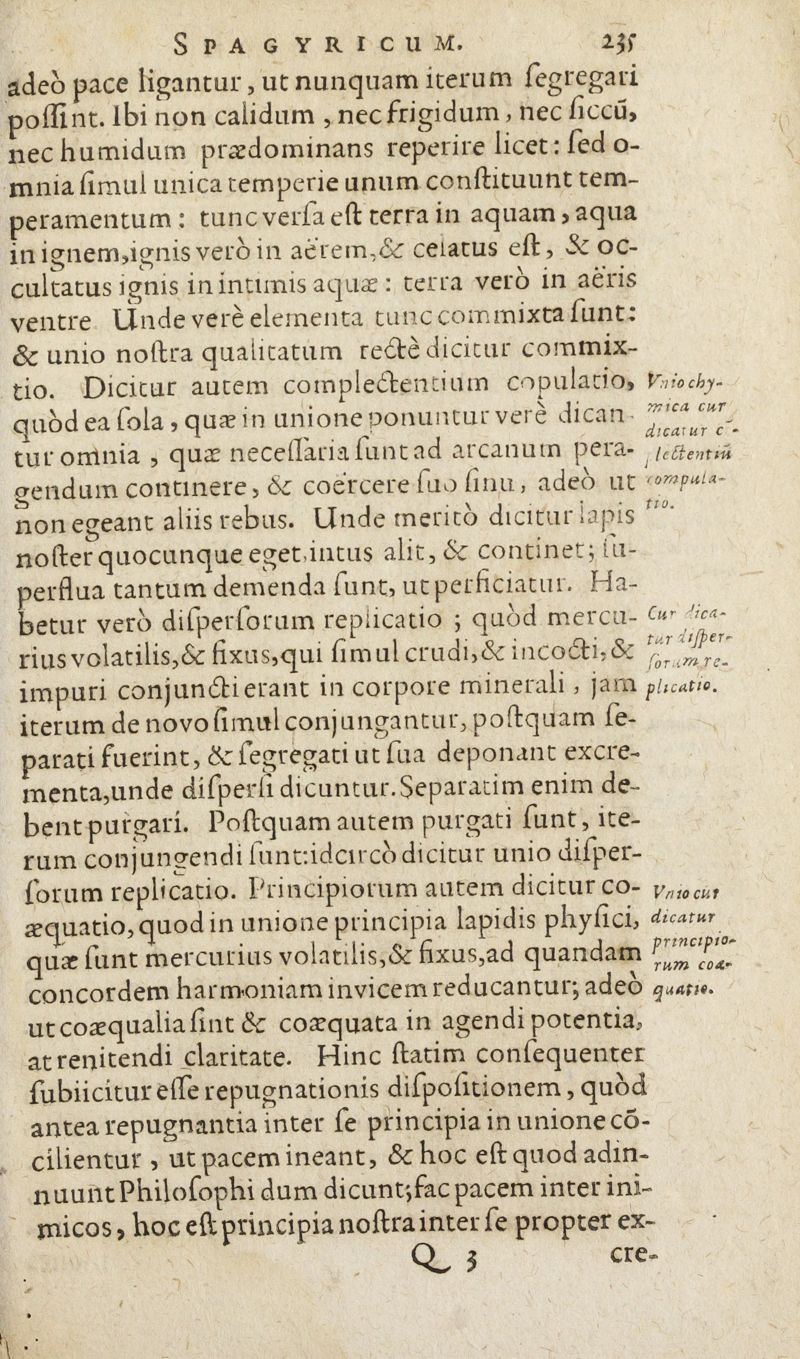 SPAGYRICUM. 235
adeò pace ligantur, ut nunquam iterum ſegregari
poſſint. Ibi non calidum, nec frigidum, nec ſiccũ,
nec humidum prædominans reperire licet: ſed o-
mnia ſimul unica temperie unum conſtituunt tem-
peramentum: tunc verſa eſt terra in aquam, aqua
in ignem, ignis verò in aërem, & celatus eſt, & oc-
cultatus ignis in intimis aquæ: terra verò in aëris
ventre. Unde verè elementa tunc commixta ſunt:
& unio noſtra qualitatum rectè dicitur commix-
tio. Dicitur autem complectentium copulatio,
quòd ea ſola, quæ in unione ponuntur verè dican-
tur omnia, quæ neceſſaria ſunt ad arcanum pera-
gendum continere, & coërcere ſuo ſinu, adeò ut
non egeant aliis rebus. Unde meritò dicitur lapis
noſter quocunque eget, intus alit, & continet; ſu-
perflua tantum demenda ſunt, ut perficiatur. Ha-
betur verò diſperſorum replicatio; quòd mercu-
rius volatilis, & fixus, qui ſimul crudi, & incocti, &
impuri conjuncti erant in corpore minerali, jam
iterum de novo ſimul conjungantur, poſtquam ſe-
parati fuerint, & ſegregati ut ſua deponant excre-
menta, unde diſperſi dicuntur. Separatim enim de-
bent purgari. Poſtquam autem purgati ſunt, ite-
rum conjungendi ſunt: idcircò dicitur unio diſper-
ſorum replicatio. Principiorum autem dicitur co-
æquatio, quod in unione principia lapidis phyſici,
quæ ſunt mercurius volatilis, & fixus, ad quandam
concordem harmoniam invicem reducantur; adeò
ut coæqualia ſint & coæquata in agendi potentia,
at renitendi claritate. Hinc ſtatim conſequenter
ſubiicitur eſſe repugnationis diſpoſitionem, quòd
antea repugnantia inter ſe principia in unione cõ-
cilientur, ut pacem ineant, & hoc eſt quod adin-
nuunt Philoſophi dum dicunt; fac pacem inter ini-
micos, hoc eſt principia noſtra inter ſe propter ex-
Q 3 cre-
Vnio chy-
mica cur
dicatur c-
lectentiũ
compula-
tio.
Cur dica-
tur diſper-
ſorum re-
plicatio.
Vnio cur
dicatur
principio-
rum coæ-
quatio.